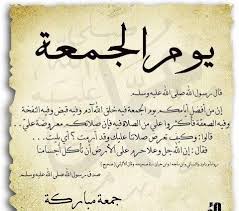 يوم الجمعة
قال رسول الله صلى الله عليه وسلم
إن من أفضل أيامكم يوم الجمعة فيه خلق الله آدم وفيه قبض وفيه النفخة
وفيه الصعقة فأكثروا علي من الصلاة فيه فإن صلاتكم معروضة علي
قالوا: وكيف تعرض صلاتنا عليك وقد أرمت ؟ أي بليت
فقال: إن الله جل وعلا حرم على الأرض أن تأكل أجسامنا
صدق رسول الله صلى الله عليه وسلم
جمعة مباركة